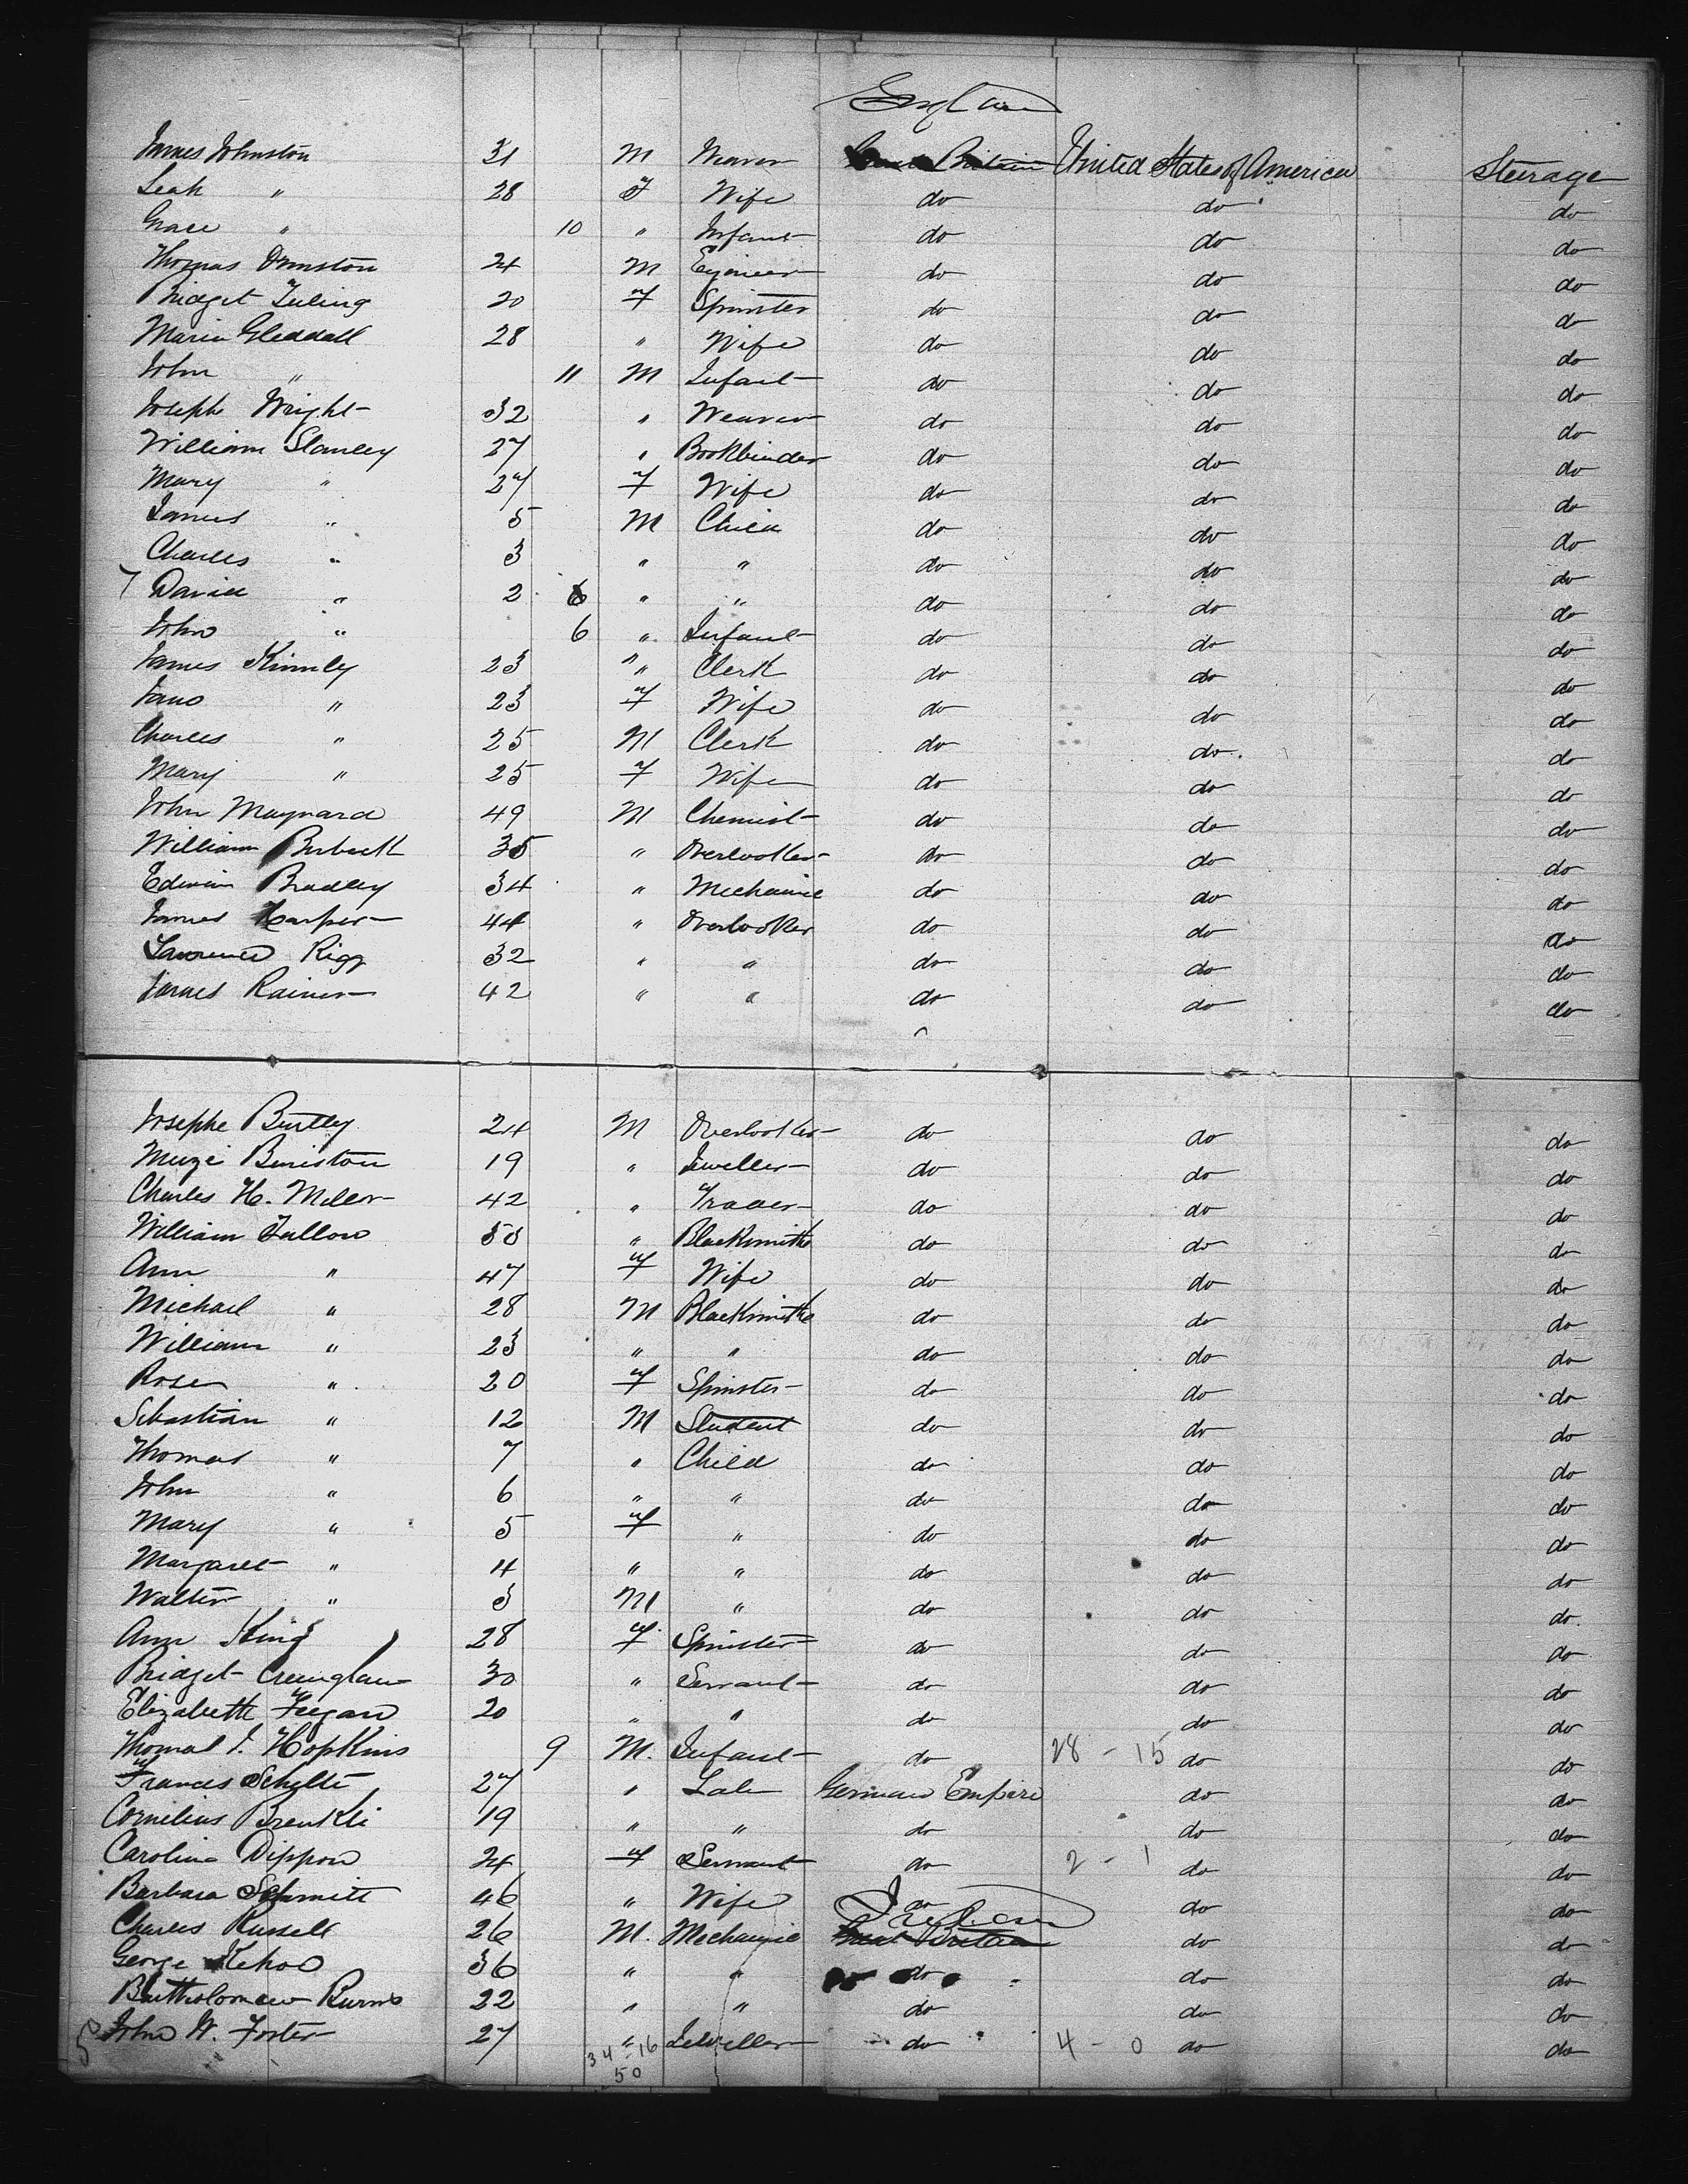 England
James Johnston 31 M Weaver Great Britain United States of America Steerage
Leah " 28 F Wife do do do
Grace " 10 " Infant do do do
Thomas Ormston 24 M Egineer do do do
Bridget 20 F Spinster do do do
Maria Gleddall 28 " Wife do do do
John " 11 M Infant do do do
Joseph Wright 32 " Weaver do do do
William Stanley 27 " Bookbinder do do do
Mary " 27 F Wife do do do
James " 5 M Child do do do
Charles " 3 " " do do do
David " 2 6 " " do do do
John " 6 " Infant do do do
James Kinnley 23 " Clerk do do do
Jane " 23 F Wife do do do
Charles " 25 M Clerk do do do
Mary " 25 F Wife do do do
John Maynard 49 M Chemist do do do
William Burbeck 35 " Overlooker do do do
Edwin Bradley 34 " Mechanic do do do
James Harper 44 " Overlooker do do do
Lawrence Rigg 32 " " do do do
James Rainer 42 " " do do do
Josephe Bentley 24 M Overlooker do do do
19 " Jeweller do do do
Charles H. Miller 42 " Trader do do do
William Fallow 50 " Blacksmith do do do
Ann " 47 F Wife do do do
Michael " 28 M Blacksmith do do do
William " 23 " " do do do
Rose " 20 F Spinster do do do
Sebastian " 12 M Student do do do
Thomas " 7 " Child do do do
John " 6 " " do do do
Mary " 5 F " do do do
Margaret " 4 " " do do do
Walter " 3 M " do do do
Ann King 28 F Spinster do do do
Bridget 30 " Servant do do do
Elizabeth Feegan 20 " " do do do
Thomas J. Hopkins 9 M. Infant do 28 - 15 do do
Frances Schylte 27 " Lab German Empire do do
Cornelius Brenkli 19 " " do do do
Carolina Dippon 24 F Servant do 2 - 1 do do
Barbara Schmitt 46 " Wife do do do
Ireland
Charles Russell 26 M. Mechanic Great Britain do do
George Kehoo 36 " " do do do
Bartholomew Burns 22 " " do do do
John W. Foster 27 " Jeweller do 4 - 0 do do
34 - 16
50